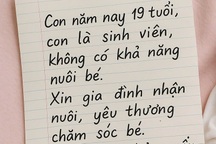 Con năm nay 19 tuổi,
con là sinh viên,
không có khả năng
nuôi bé.
Xin gia đình nhận
nuôi, yêu thương
chăm sóc bé.